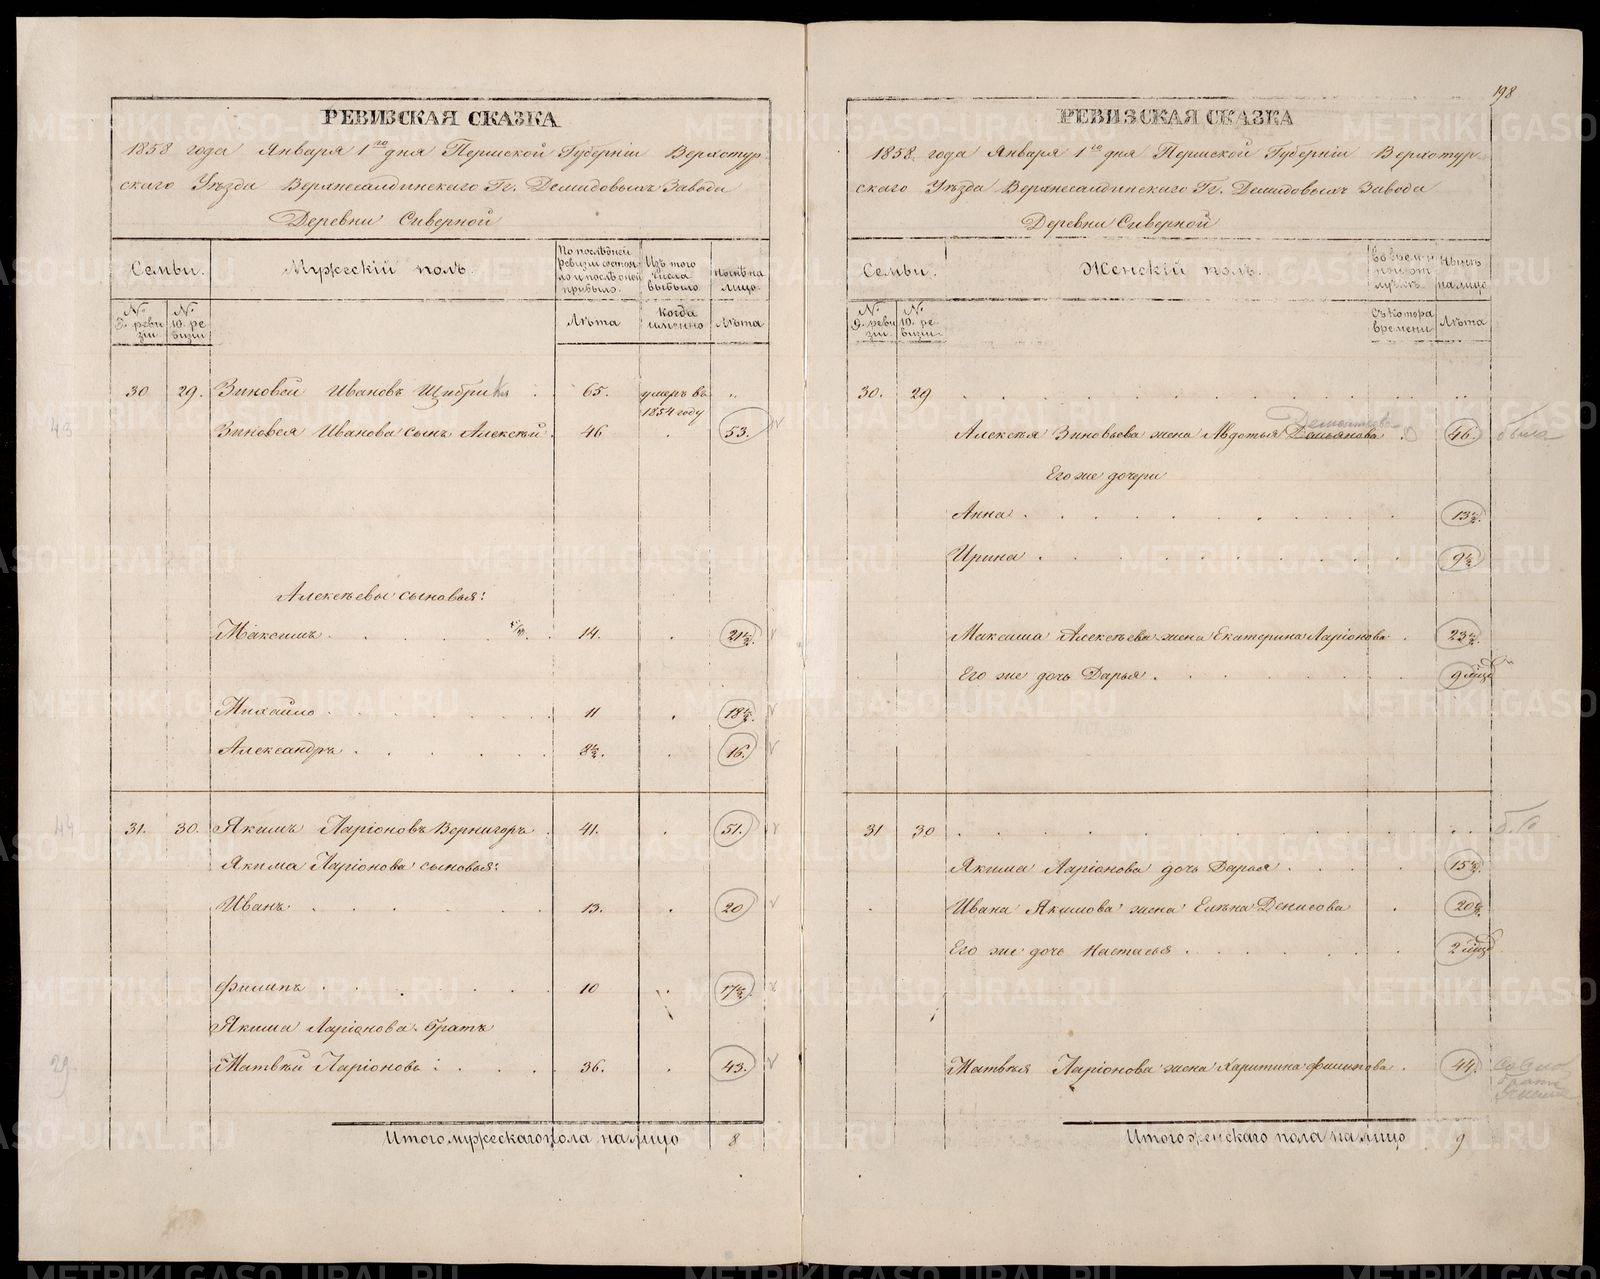 РЕВИЗСКАЯ СКАЗКА
1858 года Января 1го дня Пермской Губернiи Верхотур-
скаго Уѣзда Верхнесалдинскаго Гг. Демидовыхъ Завода
Деревни Сиверной
Семьи.
Мужескiй полъ.
По послѣдней ревизiи состоя-ло и послѣ оной прибыло.
Изъ того числа выбыло
Нынѣ на лицо.
№ 9. реви зiи
№ 10. ре визiи
Лѣта
когда имянно
Лѣта
30 29. Зиновей Ивановъ 65. умеръ въ 1854 году „
43 Зиновея Иванова сынъ Алексѣй 46 53.
Алексѣевы сыновья:
Максимъ 14. 21½.
Михайло 11 18½.
Александръ 8½. 16.
44 31. 30. Якимъ Ларiоновъ Вернигоръ 41. 51.
Якима Ларiонова сыновья:
Иванъ 13. 20
Филипъ 10 17½.
Якима Ларiонова братъ
29 Матвѣй Ларiоновъ: 36. 43.
Итого мужескаго пола на лицо 8
198
РЕВИЗСКАЯ СКАЗКА
1858 года Января 1го дня Пермской Губернiи Верхотур-
скаго Уѣзда Верхнесалдинскаго Гг. Демидовыхъ Завода
Деревни Сиверной
Семьи.
Женскiй полъ.
Во времен. отлучкѣ
Нынѣ на лицо
№ 9. реви зiи
№ 10. ре визiи
Съ котора времени
Лѣта
30. 29
Дементьева
Алексѣя Зиновьева жена Авдотья Дамьянова 46. была
Его же дочери
Анна 13½.
Ирина 9½
Максима Алексѣева жена Екатерина Ларiонова 23½.
Его же дочь Дарья 9 мѣсяц
31 30
Якима Ларiонова дочь Дарья 15½.
Ивана Якимова жена Елѣна Денисова 20½.
Его же дочь Настасья 2 мѣсяц
Матвѣя Ларiонова жена Харитина Филипова 44.
Итого женскаго пола на лицо 9
METRIKI.GASO-URAL.RU